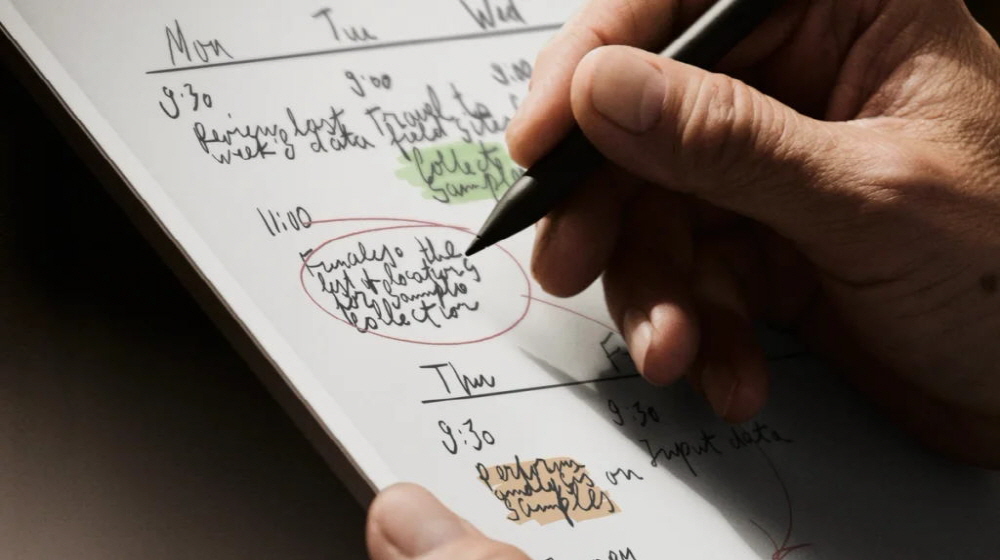 Mon Tue Wed
9:30 9:00 9:00
Review last Travel to
week's data field sites
Collect
Samples
11:00
Finalize the
list of locations
for sample
collection
Thu
9:30 9:30
Perform on Input data
analysis
samples